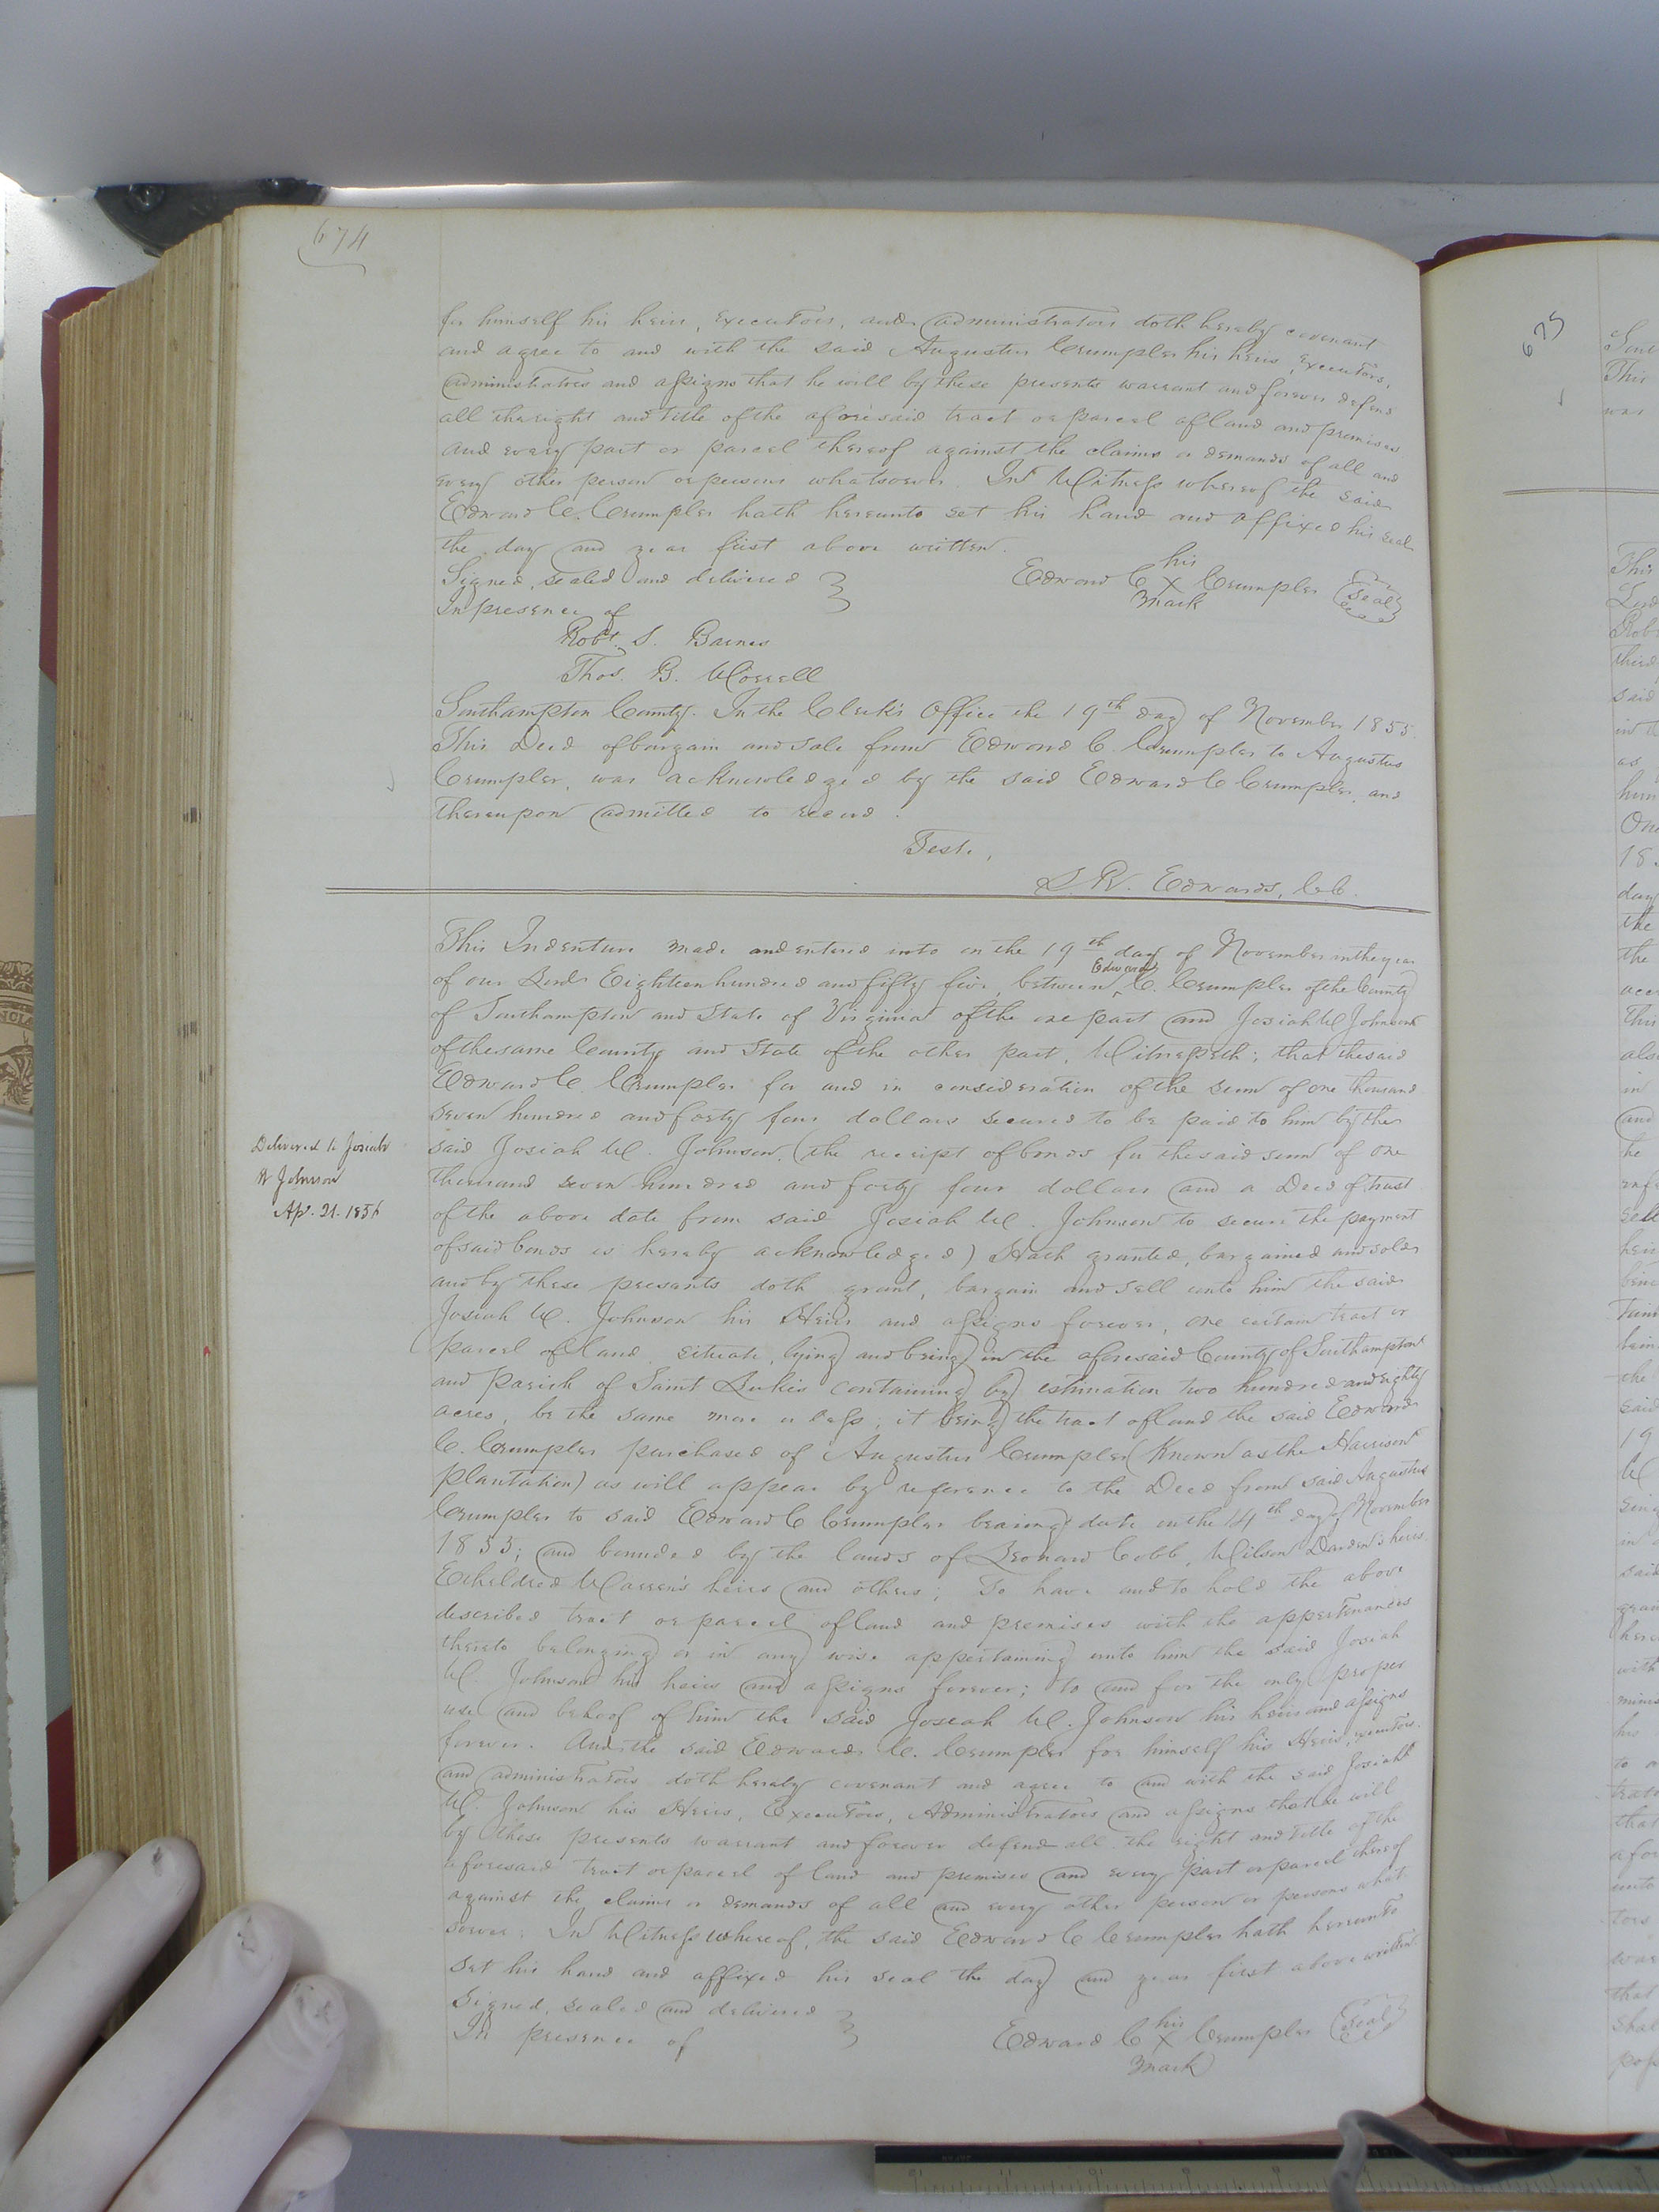 674
for himself his heirs, executors, and administrators doth hereby covenant
and agree to and with the said Augustus Crumpler his heirs, executors,
administrators and assigns that he will by these presents warrant and forever defend
all the right and title of the aforesaid tract or parcel of land and premises
and every part or parcel thereof against the claims or demands of all and
every other person or persons whatsoever. In Witness whereof the said
Edward C. Crumpler hath hereunto set his hand and affixed his seal
the day and year first above written.
Signed, sealed and delivered
In presence of
Edward C his X mark Crumpler (Seal)
Robt. S. Barnes
Thos. B. Worrell
Southampton County. In the Clerk's Office the 19th day of November 1855.
This Deed of bargain and sale from Edward C. Crumpler to Augustus
Crumpler, was acknowledged by the said Edward C Crumpler, and
thereupon admitted to record.
Test.,
L. R. Edwards, C.C.
This Indenture made and entered into on the 19th day of November in the year
of our Lord Eighteen hundred and fifty five, between Edward C. Crumpler of the County
of Southampton and State of Virginia of the one part and Josiah W Johnson
of the same County and State of the other part, Witnesseth; that the said
Edward C. Crumpler for and in consideration of the sum of one thousand
seven hundred and forty four dollars secured to be paid to him by the
said Josiah W. Johnson, (the receipt of bonds for the said sum of one
thousand seven hundred and forty four dollars and a Deed of trust
of the above date from said Josiah W. Johnson to secure the payment
of said bonds is hereby acknowledged) Hath granted, bargained and sold
and by these presants doth grant, bargain and sell unto him the said
Josiah W. Johnson his Heirs and assigns forever, one certain tract or
parcel of land, situate, lying and being in the aforesaid County of Southampton
and Parish of Saint Luke's containing by estimation two hundred and eighty
acres, be the same more or less, it being the tract of land the said Edward
C. Crumpler purchased of Augustus Crumpler (Known as the Harrison
plantation) as will appear by reference to the Deed from said Augustus
Crumpler to said Edward C Crumpler bearing date on the 14th day of November
1853; and bounded by the lands of Leonard Cobb, Wilson Darden's heirs,
Etheldred Warren's heirs and others; To have and to hold the above
described tract or parcel of land and premises with the appertenances
thereto belonging or in any wise appertaining unto him the said Josiah
W. Johnson his heirs and assigns forever; to and for the only proper
use and behoof of him the said Josiah W. Johnson his heirs and assigns
forever. And the said Edward C. Crumpler for himself his Heirs, executors
and administrators doth hereby covenant and agree to and with the said Josiah
W. Johnson his Heirs, Executors, Administrators and assigns that he will
by these presents warrant and forever defend all the right and title of the
aforesaid tract or parcel of land and premises and every part or parcel thereof
against the claims or demands of all and every other person or persons what
soever. In Witness whereof, the said Edward C Crumpler hath hereunto
set his hand and affixed his seal the day and year first above written.
Signed, sealed and delivered
In presence of
Edward C his X mark Crumpler (Seal)
Delivered to Josiah
W Johnson
Ap. 21. 1856
675
This
was
This
said
as
One
18
day
the
the
in
and
the
sell
the
said
19
W
in
said
with
his
that
unto
that